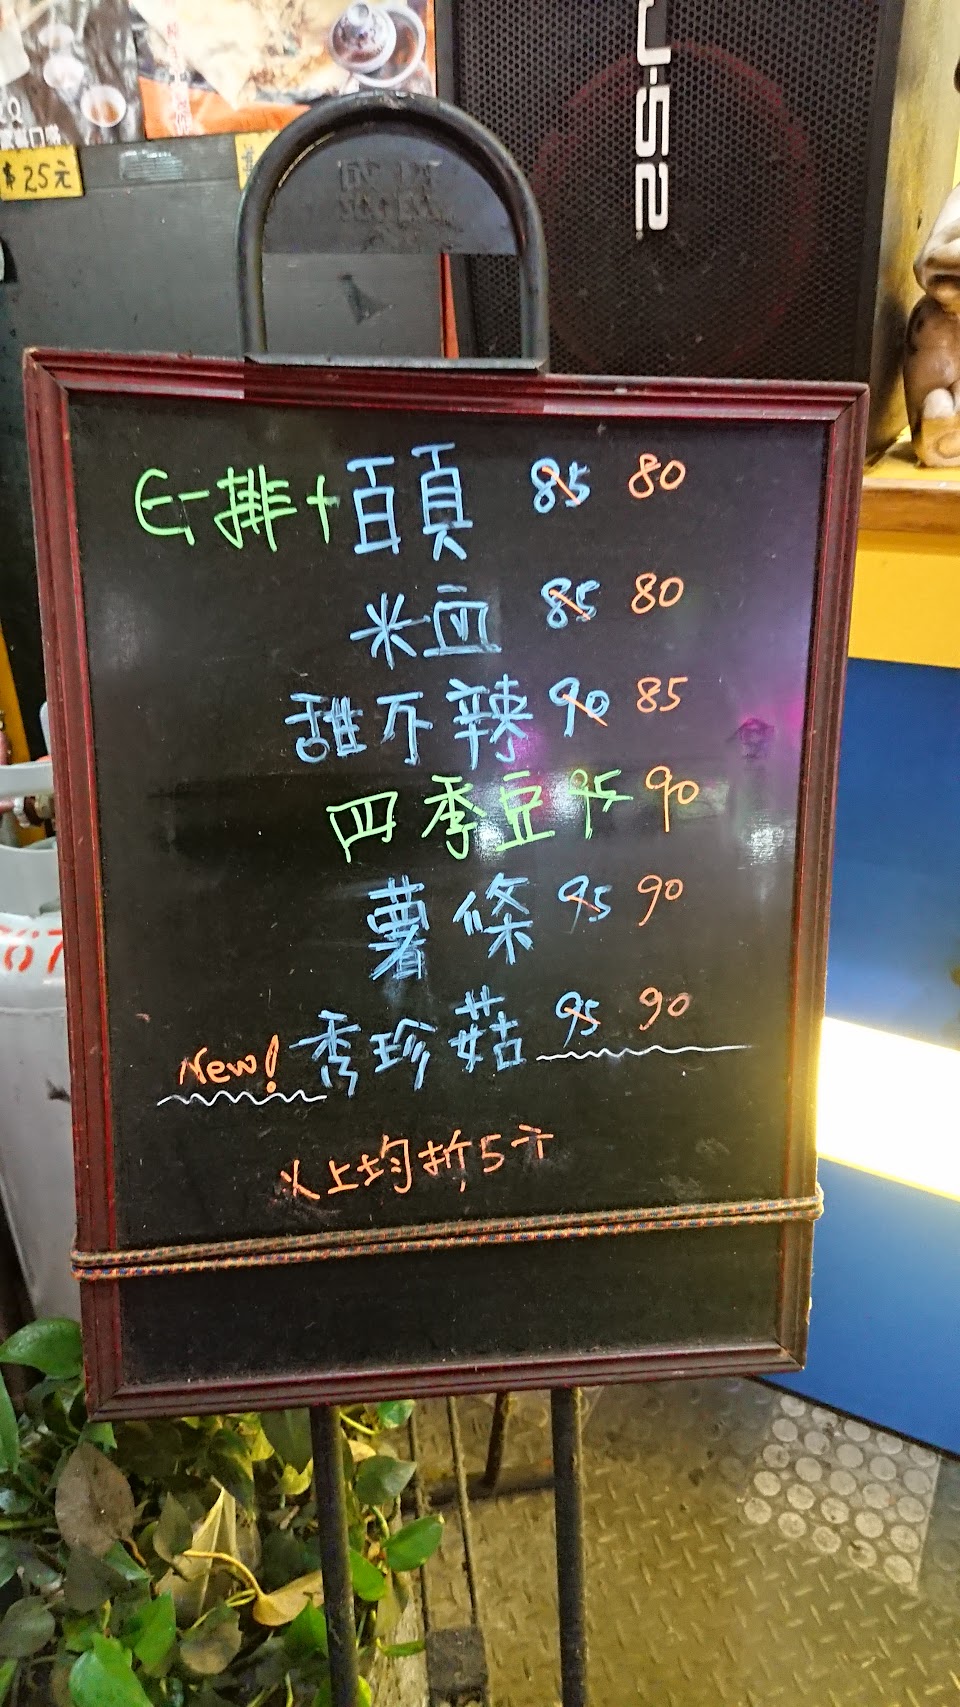 $25元
U-52
ㄐㄧ排+百頁 85 80
米血 85 80
甜不辣 90 85
四季豆 95 90
薯條 95 90
New! 秀珍菇 95 90
以上均折5元